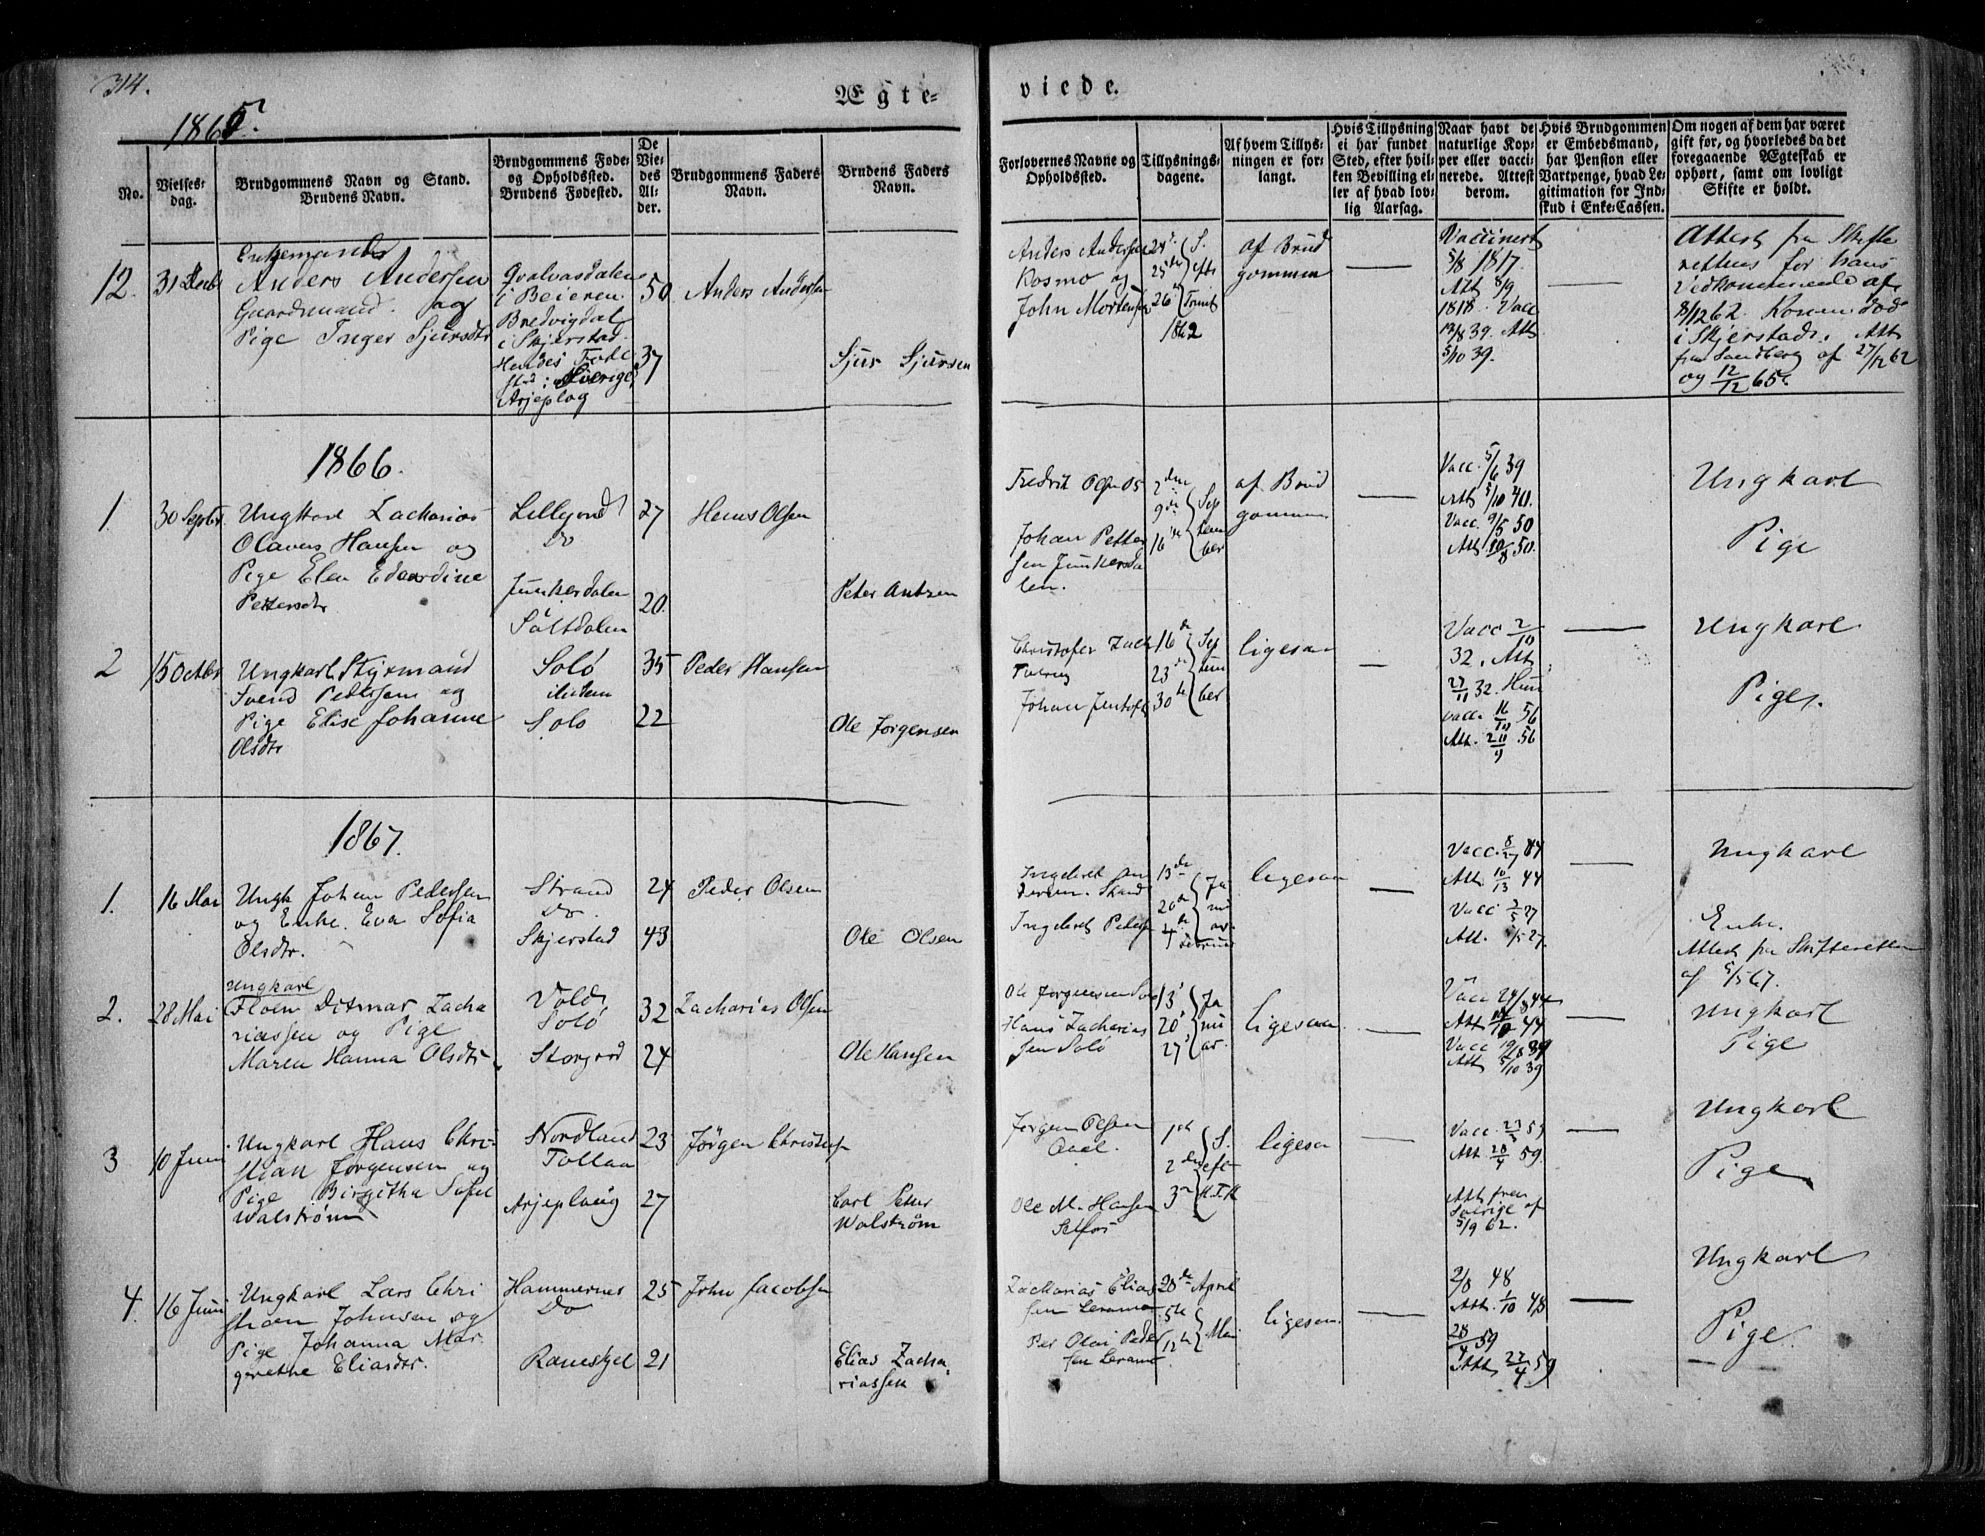 314.
Ægte-
viede.
1865.
No.
Vielses-
dag.
Brudgommens Navn og Stand.
Brudens Navn.
Brudgommens Føde-
og Opholdssted.
Brudens Fødested.
De
Vie-
des
Al-
der.
Brudgommens Faders
Navn.
Brudens Faders
Navn.
Forlovernes Navne og
Opholdssted.
Tillysnings-
dagene.
Af hvem Tillys-
ningen er for-
langt.
Hvis Tillysning
ei har fundet
Sted, efter hvil-
ken Bevilling el-
ler af hvad lov-
lig Aarsag.
Naar havt de
naturlige Kop-
per eller vacci-
nerede. Attest
derom.
Hvis Brudgommen
er Embedsmand,
har Pension eller
Vartpenge, hvad Le-
gitimation for Ind-
skud i Enke-Cassen.
Om nogen af dem har været
gift før, og hvorledes da det
foregaaende Ægteskab er
ophørt, samt om lovligt
Skifte er holdt.
12. 31 Decbr
Enkemand
Anders Andersen
Gaardmand. og
Pige Inger Sjursdtr
Qvalvasdalen
i Beieren
Bredvigdal
i Skjerstad.
Hendes Føde
sted i Sverige
Arjeplog
50
37
Anders Andersen
Sjur Sjursen
Anders Andersen
Kosmo og
John Mortensen
24de
25de
26de
S.
eft
Trinit
1862
af Brud
gommen
Vaccinert
5/8 1817.
Att 8/9
1818. Vacc
12/8 39. Att
5/10 39.
Attest fra Skifte
rettens for hans
Vedkommende af
8/12 62. Konen død
i Skjerstad. Att
fra Sandberg af 27/12 62
og 12/12 65.
1866.
1. 30 Septbr.
Ungkarl Zacharias
Olaves Hansen og
Pige Elen Edvardine
Pettersdtr
Lillejord
Do
Junkerdalen
Saltdalen
27
20
Hans Olsen
Peter Antzen
Fredrik Olsen Os
Johan Petter
sen Junkersda
len.
2den
9de
16de
Sep
tem
ber
af Brud
gommen
Vacc. 5/6 39
Att 5/10 40.
Vacc. 9/5 50
Att. 10/8 50.
Ungkarl
Pige
2 15 Octbr
Ungkarl Styrmand
Svend Pedersen og
Pige Elise Johanne
Olsdtr
Solø
Solø
35
22
Peder Hansen
Ole Jørgensen
Christofer Zach
Johan Jentoft
16de
23de
30de
Sep
tem
ber
ligesaa
Vacc 2/10
32. Att
27/11 32. Hun
vacc. 16/10 56
Att. 20/9 56
Ungkarl
Pige.
1867.
1. 16 Mai
Ungk Johan Pedersen
og Enke. Eva Sofia
Olsdtr.
Strand
Do.
Skjerstad
24
43
Peder Olsen
Ole Olsen
Ingebret
Strand
Ingebret Peders
13de
20de
4de
Ja
nu
ar
Februar
ligesaa
Vacc. 8/7 44
Att. 10/13 44
Vacc 2/5 27
Att. /5 27.
Ungkarl
Enke.
Attest fra Skifteretten
af 5/5 67.
2. 28 Mai
Ungkarl
Floen Ditmar Zacha
riassen og Pige
Maren Hanna Olsdtr
Vold
Solø
Storjord
32
24
Zacharias Olsen
Ole Hansen
Ole Jørgensen Solø
Hans Zacharias
sen Solø
13
20
27
Ja
nu
ar.
ligesaa
Vacc 24/8 44
Att 14/10 44
Vacc 19/8 39
Att 5/10 39
Ungkarl
Pige
3 10 Juni
Ungkarl Hans Chri-
stian Jørgensen og
Pige Birgitha Sofie
Walstrøm
Nordland
Tollaa
Arjeplaug
23
27
Jørgen Christens
Carl Peter
Walstrøm
Jørgen Olsen
Ole M. Hansen
Selfors
1ste
2den
3die
S.
eft
H.T.K
ligesaa
Vacc. 23/3 59
Att. 20/4 59.
Att fra
Sverige af
5/9 62.
Ungkarl
Pige
4. 16 Juni
Ungkarl Lars Chri
stian Johnsen og
Pige Johanna Mar
grethe Eliasdtr.
Hammernes
Do
Ramskjel
25
21
John Jacobsen
Elias Zacha
riassen
Zacharias Elias
sen Leramo
Per Olai Peder
sen Leramo
28de April
5te
12te
Mai
ligesaa
2/8 48
Att. 1/10 48
28/4 59
Att 27/4 59
Ungkarl
Pige.